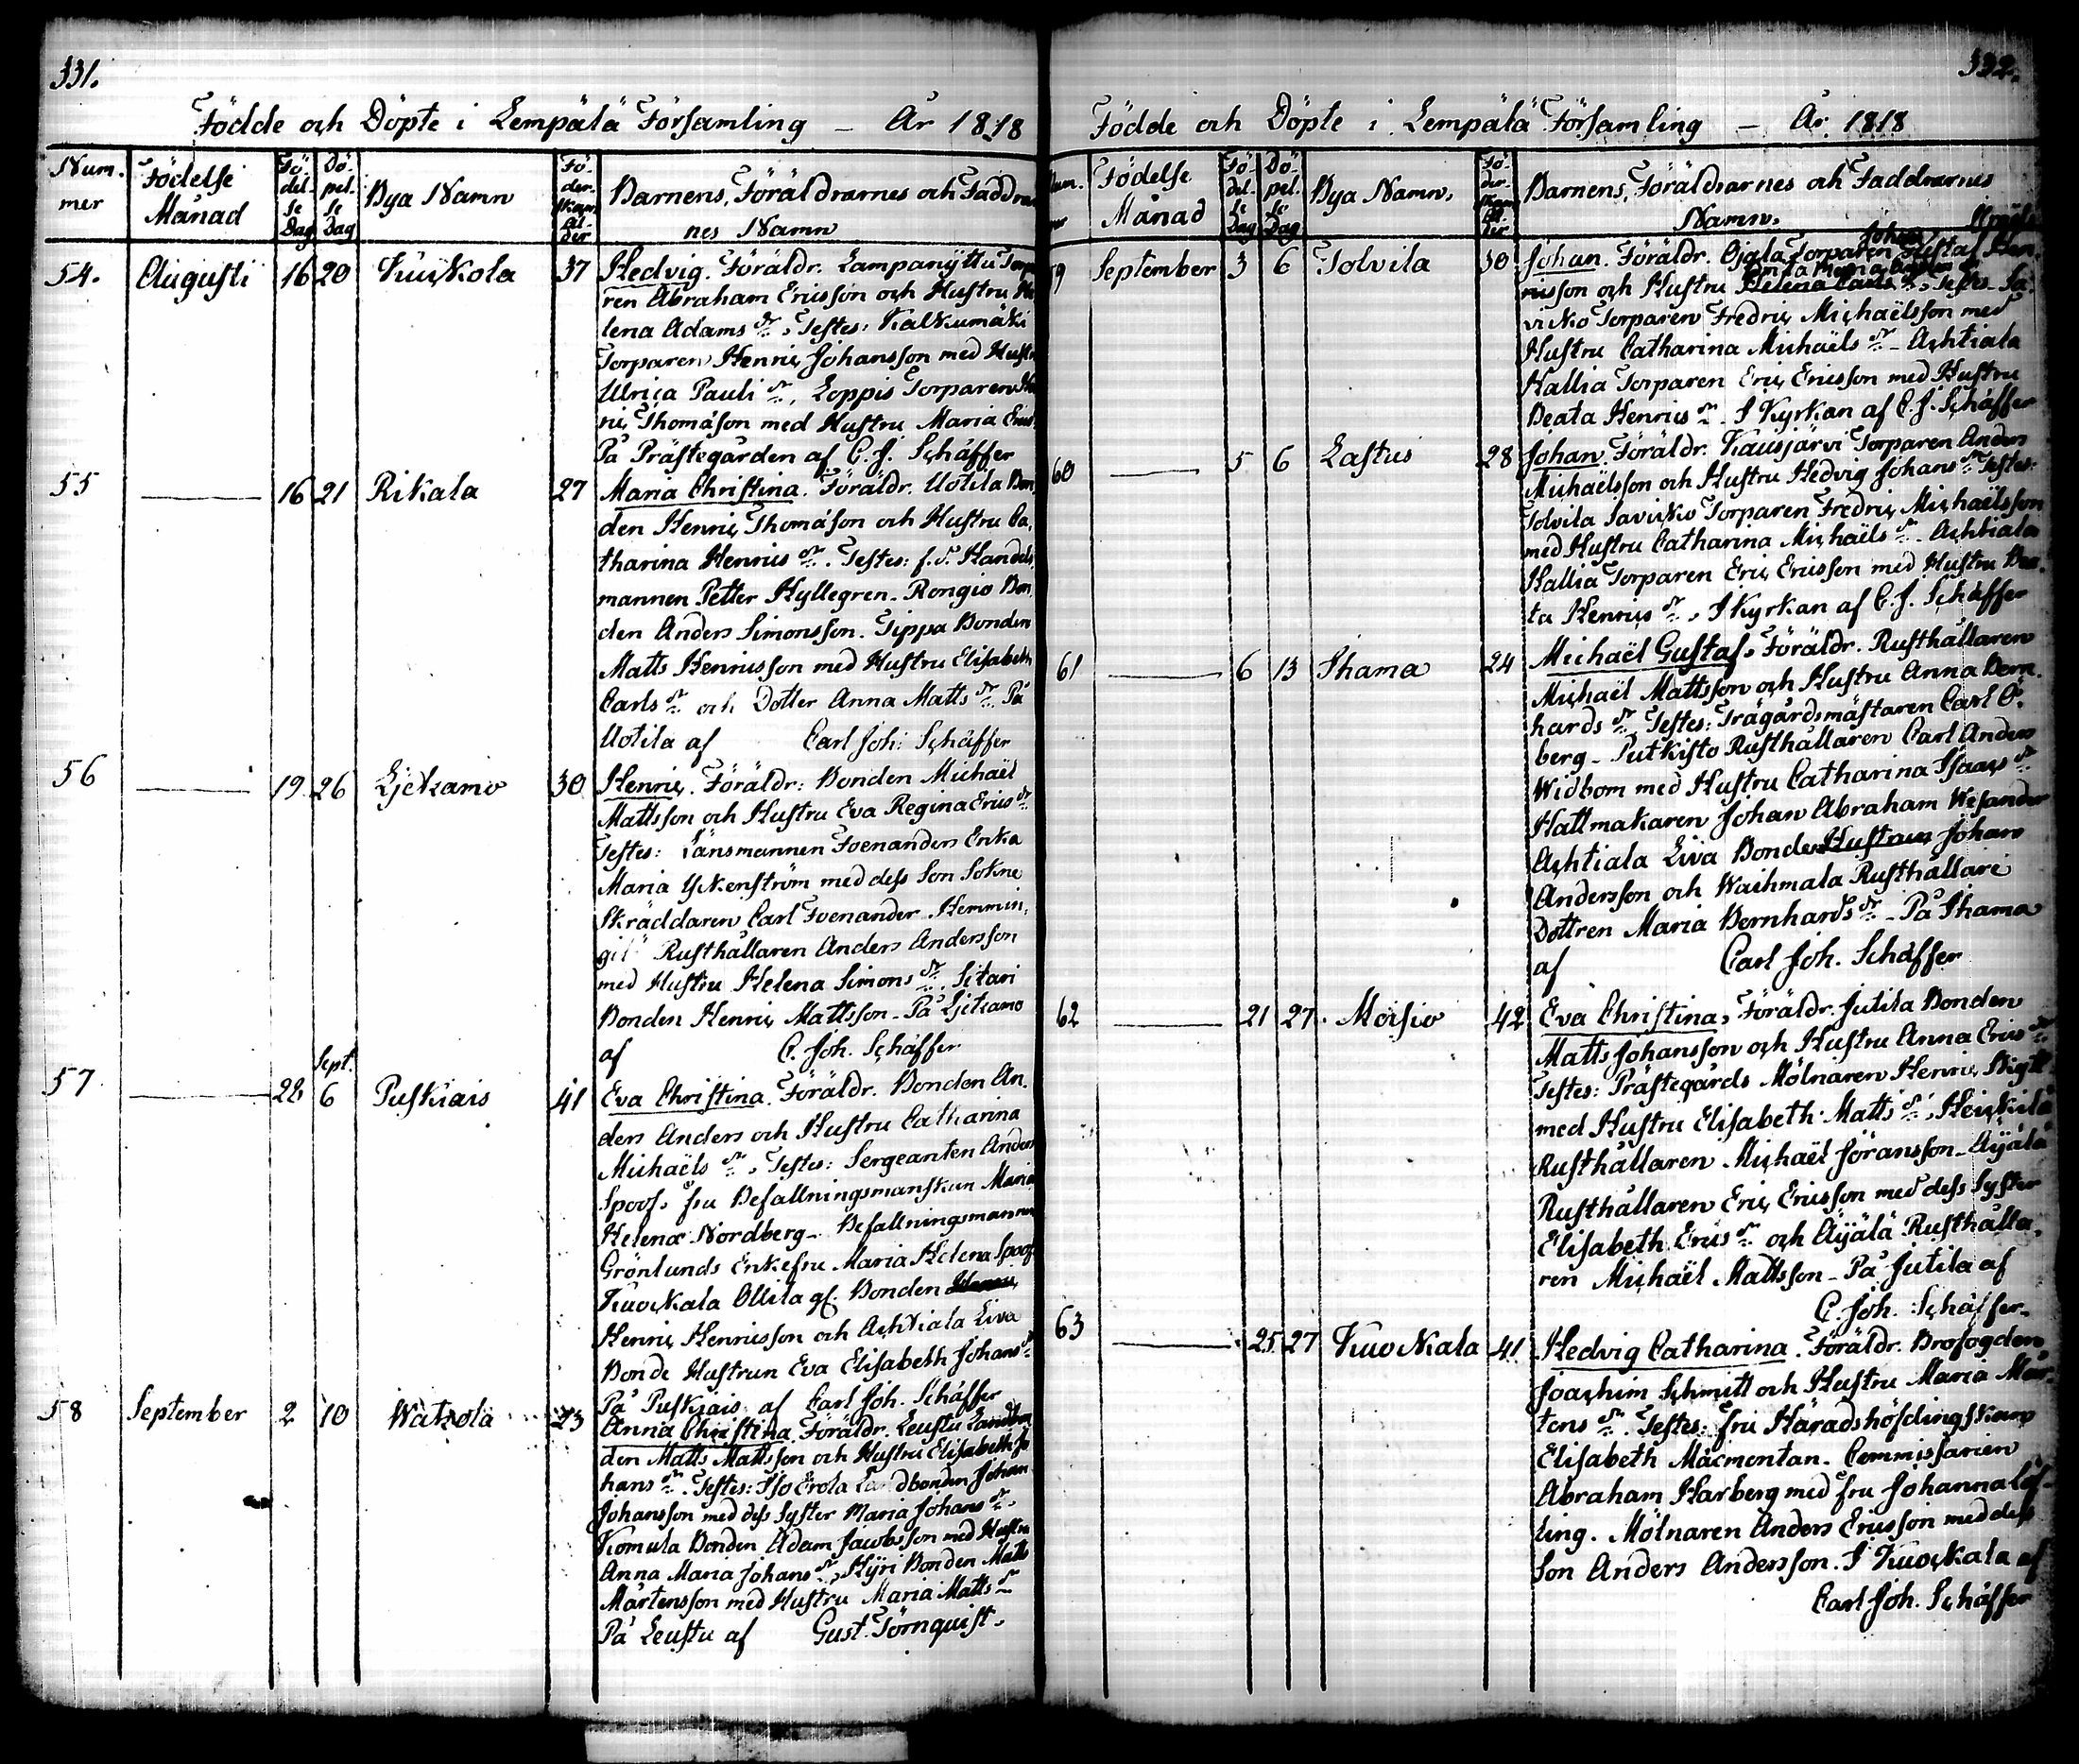 331.
Födde och Döpte i Lempälä Församling – År 1818
Num.
mer
Födelse
Månad
Fö-
del-
se
Dag
Dö-
pel-
se
Dag
Bya Namn
Fö-
der-
skans
Ål-
der
Barnens, Föräldrarnes och Faddrar
nes Namn
54. Augusti 16 20 Kuckola 37 Hedvig. Föräldr. Lampanyttu Torpa
ren Abraham Ericsson och Hustru He
lena Adams dr, Testes: Kalkumäki
Torparen Henric Johansson med Hustr
Ulrica Pauli dr, Loppis Torparen He
ric Thomason med Hustru Maria Erics
På Prästegården af C. J. Schäffer
55 16 21 Rikala 27 Maria Christina. Föräldr. Uotila Bon
den Henric Thomason och Hustru Ca,
tharina Henrics dr. Testes: f.d. Handels
mannen Petter Hyllegren. Rongio Bon,
den Anders Simonsson. Tippa Bonden
Matts Henricsson med Hustru Elisabeth
Carls dr och Dotter Anna Matts dr På
Uotila af Carl Joh: Schäffer
56 19 26 Ljekamo 30 Henric. Föräldr: Bonden Michaël
Mattsson och Hustru Eva Regina Erics dr
Testes: Länsmannen Foenanders Enka
Maria Yckenström med dess Son Sokne
Skräddaren Carl Foenander. Hemmin,
gilä Rusthållaren Anders Andersson
med Hustru Helena Simons dr, Sitari
Bonden Henric Mattsson. På Ljekamo
af C. Joh. Schäffer
57 28 Sept. 6 Puskiais 41 Eva Christina. Föräldr. Bonden An.
ders Anders och Hustru Catharina
Michaëls dr, Testes: Sergeanten Anders
Spoof. fru Befallningsmanskan Maria
Helena Nordberg – Befallningsmannen
Grönlunds Enkefru Maria Helena Spoof
Kuockala Ollila gl. Bonden
Henric Henricsson och Achtiala Liva
Bonde Hustrun Eva Elisabeth Johans dr
På Puskiais af Carl Joh. Schäffer
58 September 2 10 Watzola 23 Anna Christina. Föräldr. Leustu Landbon
den Matts Mattsson och Hustru Elisabeth Jo
hans dr. Testes: Iso Erola Landbonden Johan
Johansson med dess Syster Maria Johans dr.
Komula Bonden Adam Jacobsson med Hustru
Anna Maria Johans dr, Hyri Bonden Matts
Mårtensson med Hustru Maria Matts dr
På Leustu af Gust. Törnquist.
332.
Födde och Döpte i Lempälä Församling – År 1818
Num.
mer
Födelse
Månad
Fö-
del-
se
Dag
Dö-
pel-
se
Dag
Bya Namn,
Fö-
der-
skans
Ål-
der
Barnens, Föräldrarnes och Faddrarnes
Namn.
59 September 3 6 Tolvila 30 Johan. Föräldr. Ojala Torparen Gustaf Hen
Johan
ricsson och Hustru Helena Carls dr, Testes. Sa,
vicko Torparen Fredric Michaëlsson med
Hustru Catharina Michaëls dr – Achtiala
Hallia Torparen Eric Ericsson med Hustru
Beata Henrics dr. I Kyrkan af C. J. Schäffer
60 5 6 Lastus 28 Johan. Föräldr. Kausjärvi Torparen Anders
Michaëlsson och Hustru Hedvig Johans dr Testes:
Tolvila Savicko Torparen Fredric Michaëlsson
med Hustru Catharina Michaëls dr – Achtiala
Hallia Torparen Eric Ericsson med Hustru Bea.
ta Henrics dr, I Kyrkan af C. J. Schäffer
61 6 13 Ihama 24 Michaël Gustaf, Föräldr. Rusthållaren
Michaël Mattsson och Hustru Anna Bern
hards dr, Testes: Trägårdsmästaren Carl Ö.
berg – Putkisto Rusthållaren Carl Anders
Widbom med Hustru Catharina Isaacs dr
Hattmakaren Johan Abraham Wesander
Achtiala Liva Bonden Hustrun Johan
Andersson och Waihmala Rusthållare
Dottren Maria Bernhards dr – På Ihama
af Carl Joh. Schäffer
62 21 27 Moisio 42 Eva Christina, Föräldr. Jutila Bonden
Matts Johansson och Hustru Anna Erics dr
Testes: Prästegårds Mölnaren Henric
med Hustru Elisabeth Matts dr, Heickilä
Rusthållaren Michaël Jöransson – Äijälä
Rusthållaren Eric Ericsson med dess Syster
Elisabeth Erics dr och Äijälä Rusthålla,
ren Michaël Mattsson – På Jutila af
C. Joh. Schäffer.
63 25 27 Kuockala 41 Hedvig Catharina. Föräldr. Brofogden
Joachim Schmitt och Hustru Maria Mår-
tens dr. Testes: fru Häradshöfdingskan
Elisabeth Macmontan. Commissarien
Abraham Harberg med fru Johanna Löf-
ling. Mölnaren Anders Ericsson med dess
Son Anders Andersson. I Kuockala af
Carl Joh. Schäffer